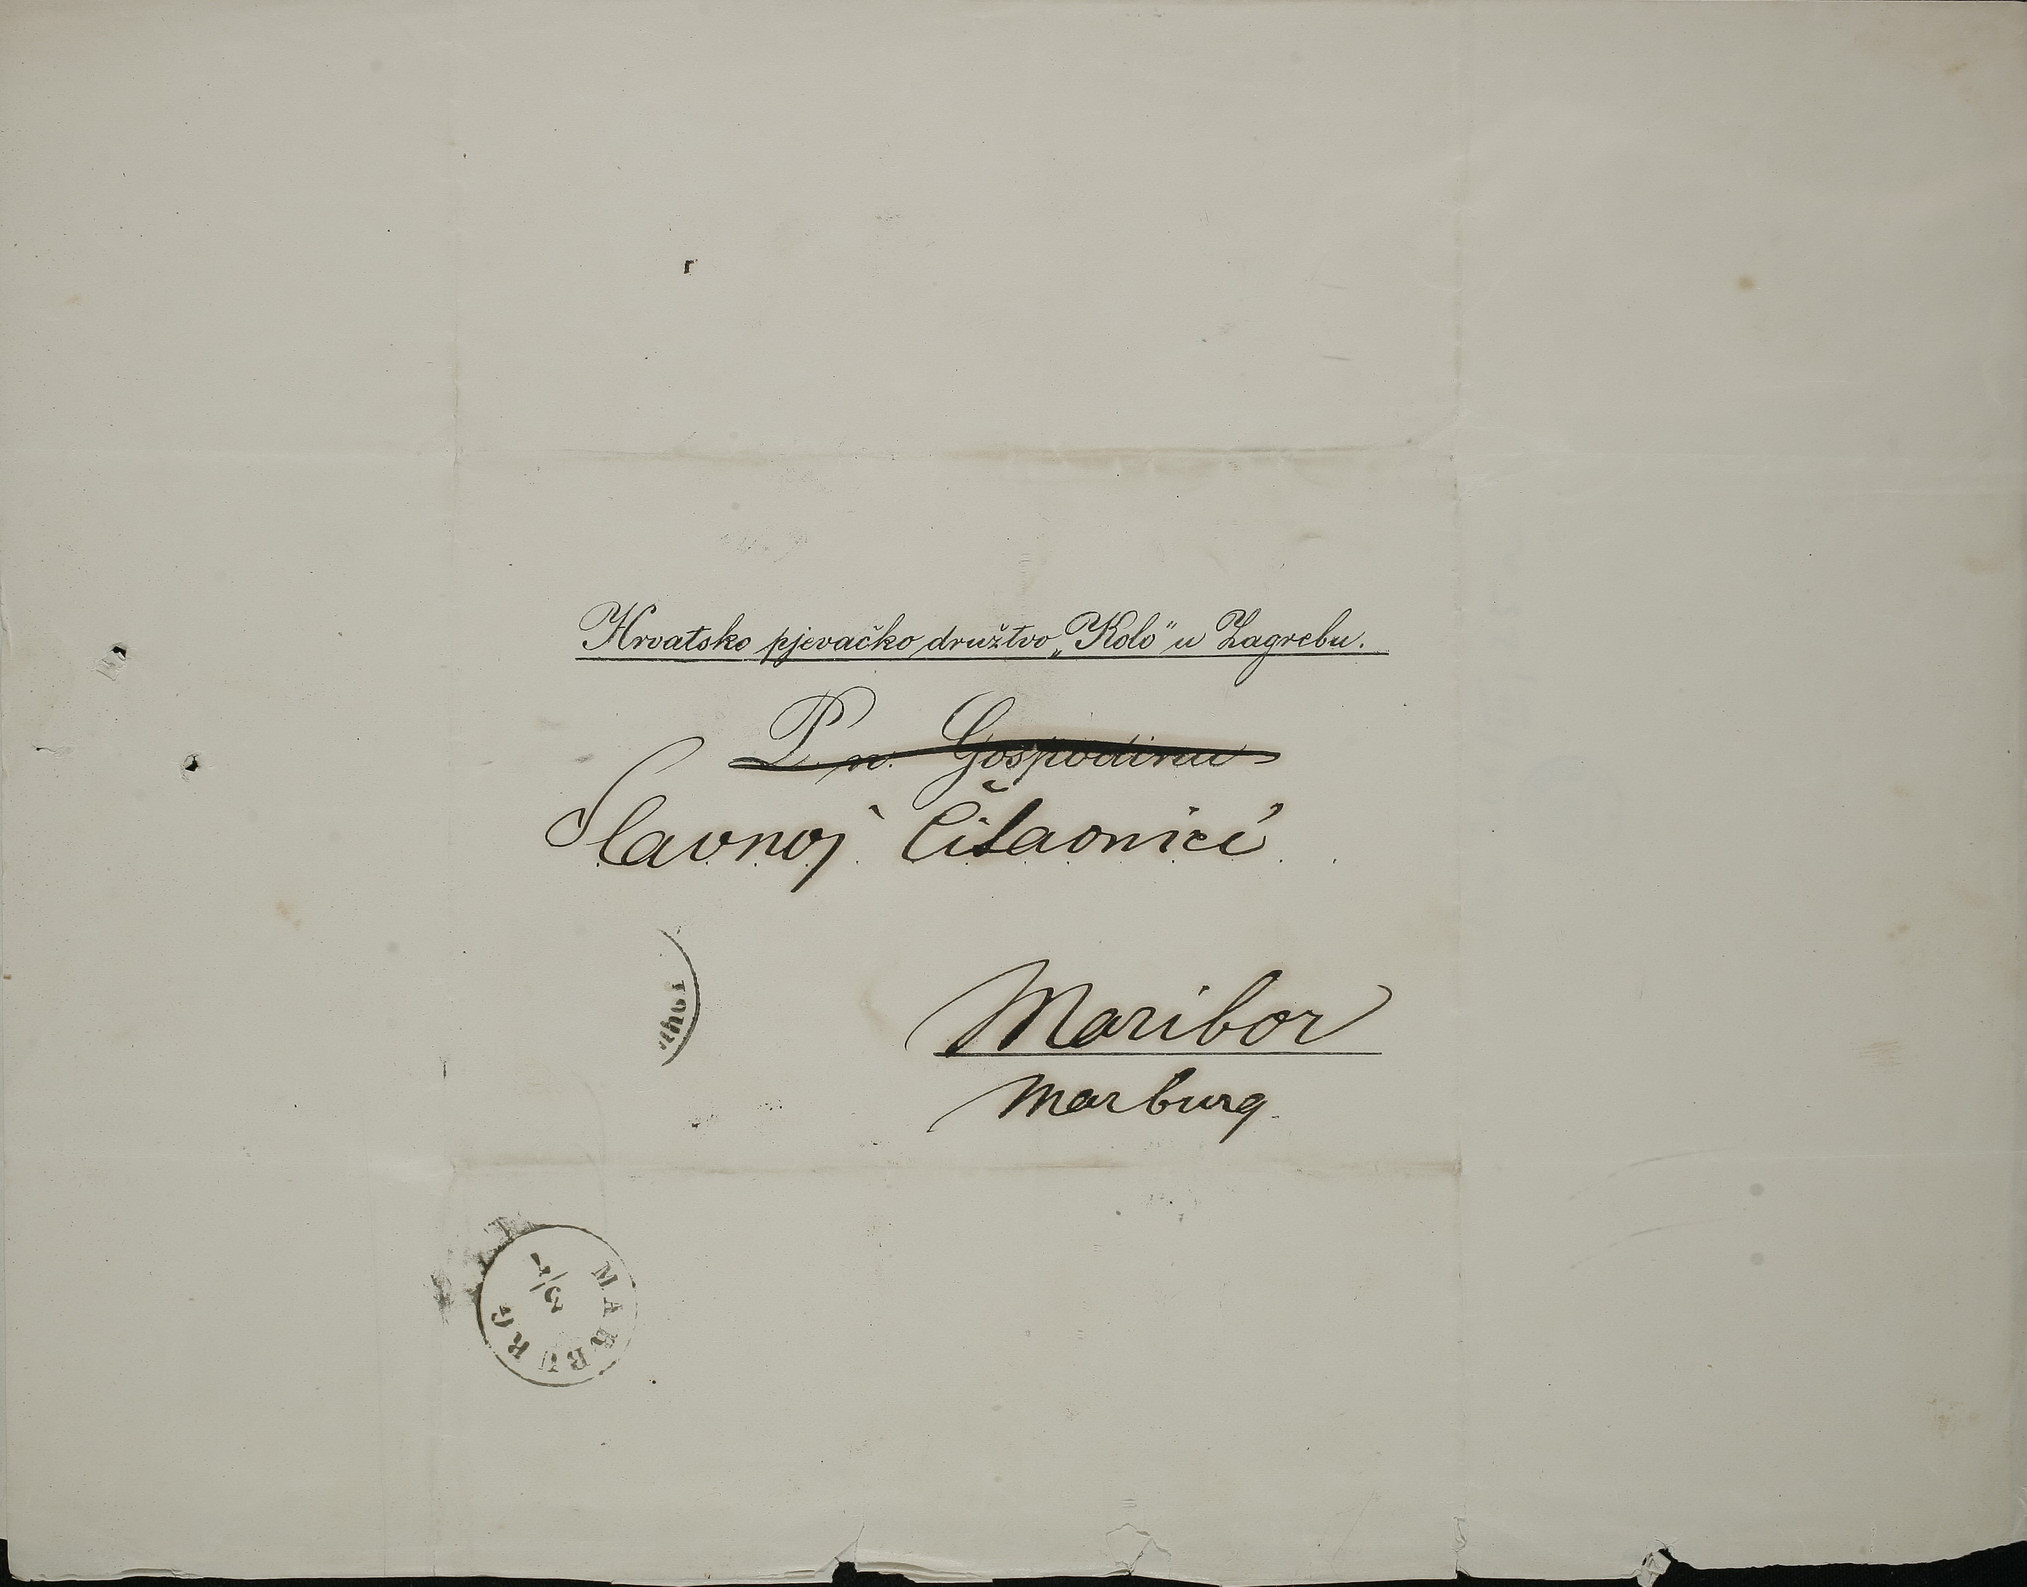 Hrvatsko pjevačko družtvo „Kolo" u Zagrebu.
P. n. Gospodinu
Slavnoj Čitaonici
Maribor
Marburg
MARBURG
3/7